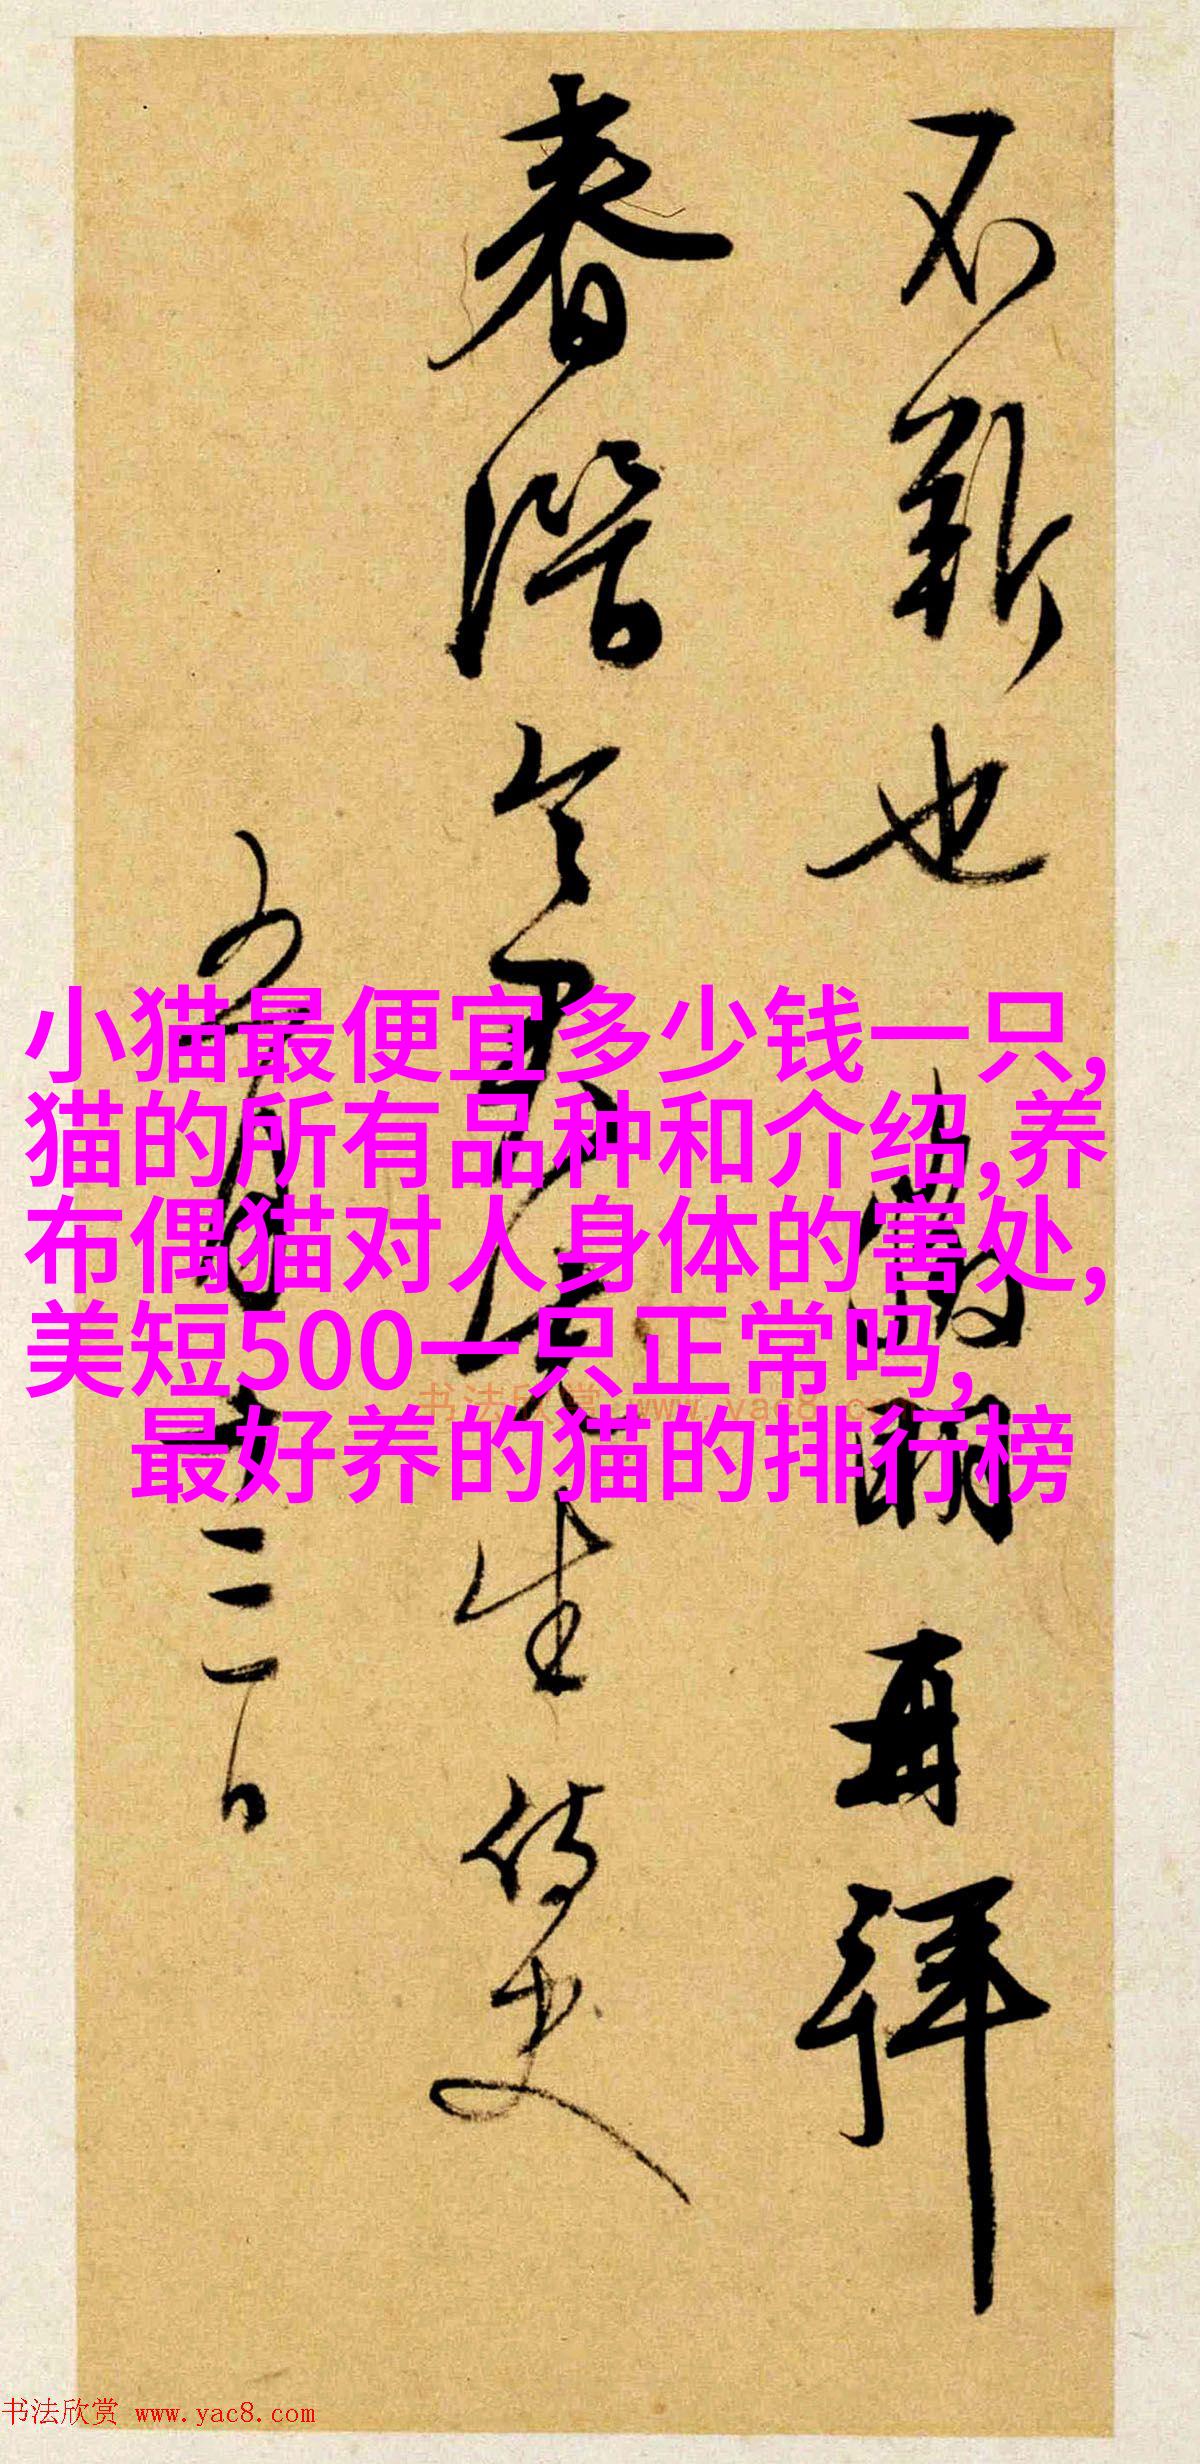 不斬也 再拜
春潛令親先生侍史
五月十三日
小猫最便宜多少钱一只,
猫的所有品种和介绍,养
布偶猫对人身体的害处,
美短500一只正常吗,
最好养的猫的排行榜
书法欣赏 www.yac8.com
书法欣赏 www.yac8.com